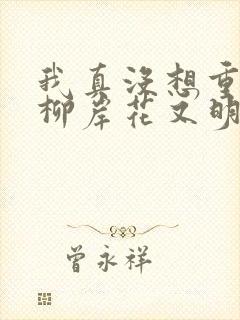 我真没想重
柳岸花又明
曾永祥